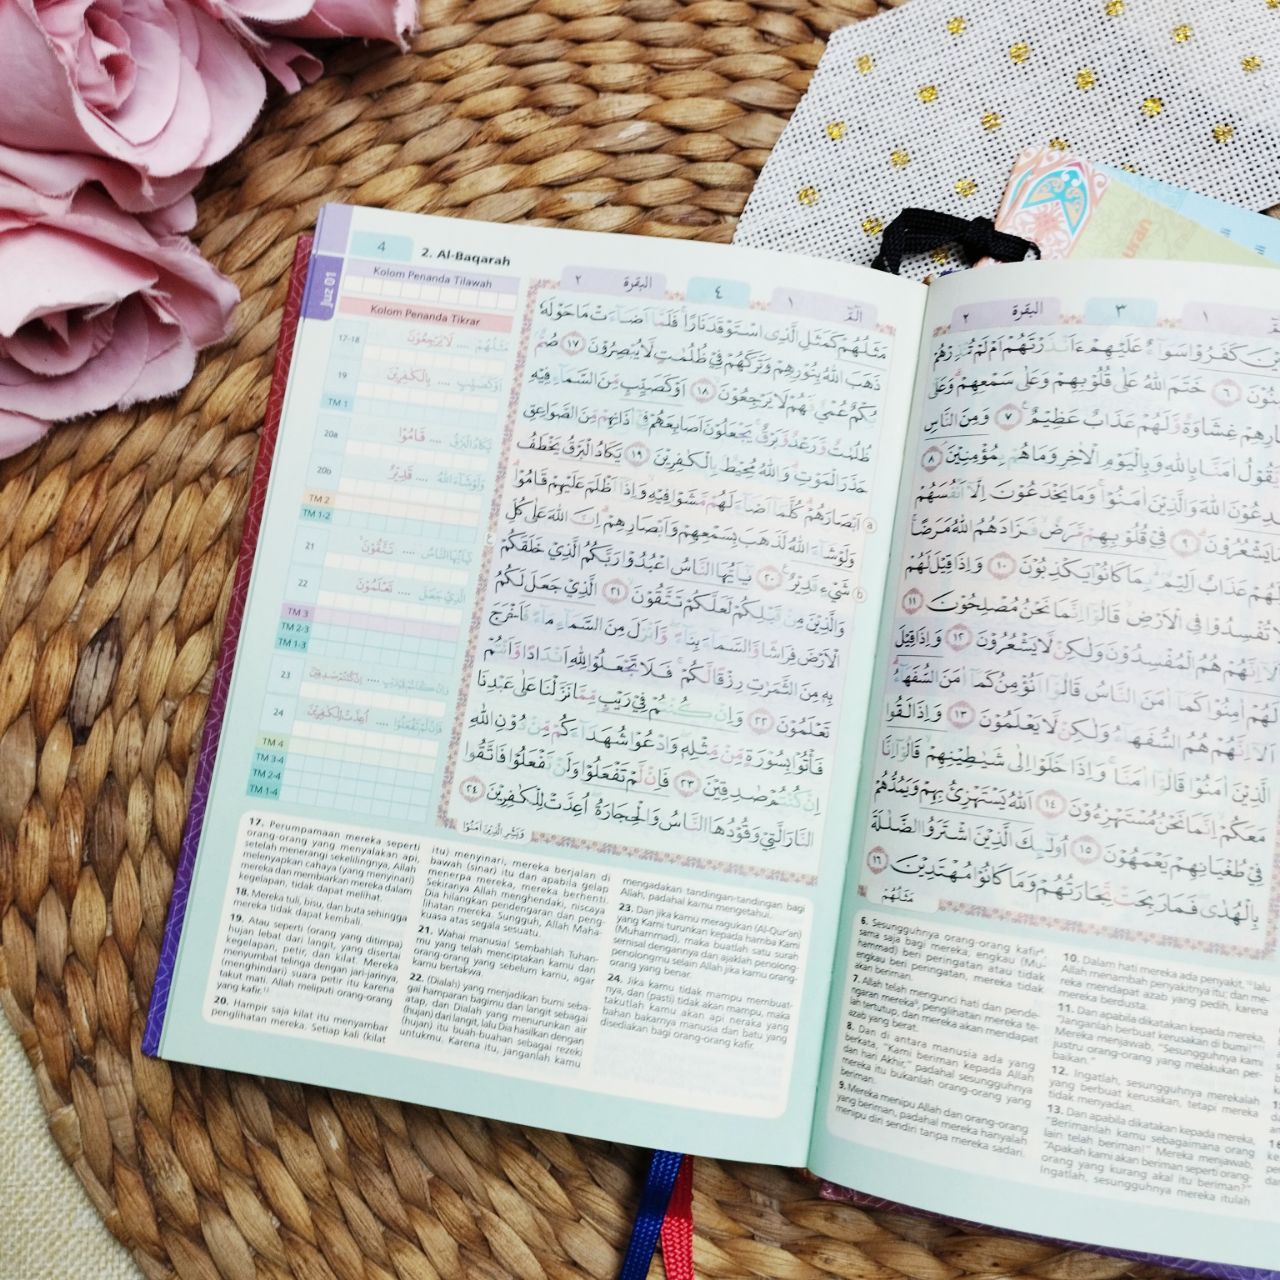 4
2. Al-Baqarah
Juz 01
Kolom Penanda Tilawah
Kolom Penanda Tikrar
17-18
مَثَلُهُمْ .... لَا يَرْجِعُوْنَ
19
اَوْ كَصَيِّبٍ .... بِالْكٰفِرِيْنَ
TM 1
20a
يَكَادُ الْبَرْقُ .... قَامُوْا
20b
وَلَوْ شَاۤءَ اللّٰهُ .... قَدِيْرٌ
TM 2
TM 1-2
21
يٰٓاَيُّهَا النَّاسُ .... تَتَّقُوْنَ
22
الَّذِيْ جَعَلَ .... تَعْلَمُوْنَ
TM 3
TM 2-3
TM 1-3
23
24
TM 4
TM 3-4
TM 2-4
TM 1-4
البقرة ٢
٤
الۤمّۤ ١
مَثَلُهُمْ كَمَثَلِ الَّذِى اسْتَوْقَدَ نَارًاۚ فَلَمَّآ اَضَاۤءَتْ مَا حَوْلَهٗ
ذَهَبَ اللّٰهُ بِنُوْرِهِمْ وَتَرَكَهُمْ فِيْ ظُلُمٰتٍ لَّا يُبْصِرُوْنَ ١٧ صُمٌّ ۢ
بُكْمٌ عُمْيٌ فَهُمْ لَا يَرْجِعُوْنَ ١٨ اَوْ كَصَيِّبٍ مِّنَ السَّمَاۤءِ فِيْهِ
ظُلُمٰتٌ وَّرَعْدٌ وَّبَرْقٌۚ يَجْعَلُوْنَ اَصَابِعَهُمْ فِيْٓ اٰذَانِهِمْ مِّنَ الصَّوَاعِقِ
حَذَرَ الْمَوْتِۗ وَاللّٰهُ مُحِيْطٌۢ بِالْكٰفِرِيْنَ ١٩ يَكَادُ الْبَرْقُ يَخْطَفُ
اَبْصَارَهُمْۗ كُلَّمَآ اَضَاۤءَ لَهُمْ مَّشَوْا فِيْهِۙ وَاِذَآ اَظْلَمَ عَلَيْهِمْ قَامُوْاۗ a
وَلَوْ شَاۤءَ اللّٰهُ لَذَهَبَ بِسَمْعِهِمْ وَاَبْصَارِهِمْۗ اِنَّ اللّٰهَ عَلٰى كُلِّ
شَيْءٍ قَدِيْرٌ ٢٠ يٰٓاَيُّهَا النَّاسُ اعْبُدُوْا رَبَّكُمُ الَّذِيْ خَلَقَكُمْ b
وَالَّذِيْنَ مِنْ قَبْلِكُمْ لَعَلَّكُمْ تَتَّقُوْنَۙ ٢١ الَّذِيْ جَعَلَ لَكُمُ
الْاَرْضَ فِرَاشًا وَّالسَّمَاۤءَ بِنَاۤءًۖ وَّاَنْزَلَ مِنَ السَّمَاۤءِ مَاۤءً فَاَخْرَجَ
بِهٖ مِنَ الثَّمَرٰتِ رِزْقًا لَّكُمْۚ فَلَا تَجْعَلُوْا لِلّٰهِ اَنْدَادًا وَّاَنْتُمْ
تَعْلَمُوْنَ ٢٢ وَاِنْ كُنْتُمْ فِيْ رَيْبٍ مِّمَّا نَزَّلْنَا عَلٰى عَبْدِنَا
فَأْتُوْا بِسُوْرَةٍ مِّنْ مِّثْلِهٖۖ وَادْعُوْا شُهَدَاۤءَكُمْ مِّنْ دُوْنِ اللّٰهِ
اِنْ كُنْتُمْ صٰدِقِيْنَ ٢٣ فَاِنْ لَّمْ تَفْعَلُوْا وَلَنْ تَفْعَلُوْا فَاتَّقُوا
النَّارَ الَّتِيْ وَقُوْدُهَا النَّاسُ وَالْحِجَارَةُۖ اُعِدَّتْ لِلْكٰفِرِيْنَ ٢٤
وَبَشِّرِ الَّذِيْنَ اٰمَنُوْا
17. Perumpamaan mereka seperti
orang-orang yang menyalakan api,
setelah menerangi sekelilingnya, Allah
melenyapkan cahaya (yang menyinari)
mereka dan membiarkan mereka dalam
kegelapan, tidak dapat melihat.
18. Mereka tuli, bisu, dan buta sehingga
mereka tidak dapat kembali.
19. Atau seperti (orang yang ditimpa)
hujan lebat dari langit, yang disertai
kegelapan, petir, dan kilat. Mereka
menyumbat telinga dengan jari-jarinya
(menghindari) suara petir itu karena
takut mati. Allah meliputi orang-orang
yang kafir.
20. Hampir saja kilat itu menyambar
penglihatan mereka. Setiap kali (kilat
itu) menyinari, mereka berjalan di
bawah (sinar) itu dan apabila gelap
menerpa mereka, mereka berhenti.
Sekiranya Allah menghendaki, niscaya
Dia hilangkan pendengaran dan peng-
lihatan mereka. Sungguh, Allah Maha-
kuasa atas segala sesuatu.
21. Wahai manusia! Sembahlah Tuhan-
mu yang telah menciptakan kamu dan
orang-orang yang sebelum kamu, agar
kamu bertakwa.
22. (Dialah) yang menjadikan bumi seba-
gai hamparan bagimu dan langit sebagai
atap, dan Dialah yang menurunkan air
(hujan) dari langit, lalu Dia hasilkan dengan
(hujan) itu buah-buahan sebagai rezeki
untukmu. Karena itu, janganlah kamu
mengadakan tandingan-tandingan bagi
Allah, padahal kamu mengetahui.
23. Dan jika kamu meragukan (Al-Qur'an)
yang Kami turunkan kepada hamba Kami
(Muhammad), maka buatlah satu surah
semisal dengannya dan ajaklah penolong-
penolongmu selain Allah jika kamu orang-
orang yang benar.
24. Jika kamu tidak mampu membuat-
nya, dan (pasti) tidak akan mampu, maka
takutlah kamu akan api neraka yang
bahan bakarnya manusia dan batu yang
disediakan bagi orang-orang kafir.
البقرة ٢
٣
١
كَفَرُوْا سَوَاۤءٌ عَلَيْهِمْ ءَاَنْذَرْتَهُمْ اَمْ لَمْ تُنْذِرْهُمْ
٦ خَتَمَ اللّٰهُ عَلٰى قُلُوْبِهِمْ وَعَلٰى سَمْعِهِمْۗ وَعَلٰٓى
غِشَاوَةٌ وَّلَهُمْ عَذَابٌ عَظِيْمٌ ٧ وَمِنَ النَّاسِ
يَّقُوْلُ اٰمَنَّا بِاللّٰهِ وَبِالْيَوْمِ الْاٰخِرِ وَمَا هُمْ بِمُؤْمِنِيْنَۘ ٨
اللّٰهَ وَالَّذِيْنَ اٰمَنُوْاۚ وَمَا يَخْدَعُوْنَ اِلَّآ اَنْفُسَهُمْ
يَشْعُرُوْنَۗ ٩ فِيْ قُلُوْبِهِمْ مَّرَضٌۙ فَزَادَهُمُ اللّٰهُ مَرَضًاۚ
عَذَابٌ اَلِيْمٌ ۢ بِمَا كَانُوْا يَكْذِبُوْنَ ١٠ وَاِذَا قِيْلَ لَهُمْ
تُفْسِدُوْا فِى الْاَرْضِۙ قَالُوْٓا اِنَّمَا نَحْنُ مُصْلِحُوْنَ ١١
اِنَّهُمْ هُمُ الْمُفْسِدُوْنَ وَلٰكِنْ لَّا يَشْعُرُوْنَ ١٢ وَاِذَا قِيْلَ
لَهُمْ اٰمِنُوْا كَمَآ اٰمَنَ النَّاسُ قَالُوْٓا اَنُؤْمِنُ كَمَآ اٰمَنَ السُّفَهَاۤءُۗ
اَلَآ اِنَّهُمْ هُمُ السُّفَهَاۤءُ وَلٰكِنْ لَّا يَعْلَمُوْنَ ١٣ وَاِذَا لَقُوا
الَّذِيْنَ اٰمَنُوْا قَالُوْٓا اٰمَنَّاۚ وَاِذَا خَلَوْا اِلٰى شَيٰطِيْنِهِمْۙ قَالُوْٓا اِنَّا
مَعَكُمْۙ اِنَّمَا نَحْنُ مُسْتَهْزِءُوْنَ ١٤ اَللّٰهُ يَسْتَهْزِئُ بِهِمْ وَيَمُدُّهُمْ
فِيْ طُغْيَانِهِمْ يَعْمَهُوْنَ ١٥ اُولٰۤىِٕكَ الَّذِيْنَ اشْتَرَوُا الضَّلٰلَةَ
بِالْهُدٰىۖ فَمَا رَبِحَتْ تِّجَارَتُهُمْ وَمَا كَانُوْا مُهْتَدِيْنَ ١٦
مَثَلُهُمْ
6. Sesungguhnya orang-orang kafir,
sama saja bagi mereka, engkau (Mu-
hammad) beri peringatan atau tidak
engkau beri peringatan, mereka tidak
akan beriman.
7. Allah telah mengunci hati dan pende-
ngaran mereka, penglihatan mereka te-
lah tertutup, dan mereka akan mendapat
azab yang berat.
8. Dan di antara manusia ada yang
berkata, "Kami beriman kepada Allah
dan hari Akhir," padahal sesungguhnya
mereka itu bukanlah orang-orang yang
beriman.
9. Mereka menipu Allah dan orang-orang
yang beriman, padahal mereka hanyalah
menipu diri sendiri tanpa mereka sadari.
10. Dalam hati mereka ada penyakit, lalu
Allah menambah penyakitnya itu; dan me-
reka mendapat azab yang pedih, karena
mereka berdusta.
11. Dan apabila dikatakan kepada mereka,
"Janganlah berbuat kerusakan di bumi!"
Mereka menjawab, "Sesungguhnya kami
justru orang-orang yang melakukan per-
baikan."
12. Ingatlah, sesungguhnya merekalah
yang berbuat kerusakan, tetapi mereka
tidak menyadari.
13. Dan apabila dikatakan kepada mereka,
"Berimanlah kamu sebagaimana orang
lain telah beriman!" Mereka menjawab,
"Apakah kami akan beriman seperti orang-
orang yang kurang akal itu beriman?"
Ingatlah, sesungguhnya mereka itulah